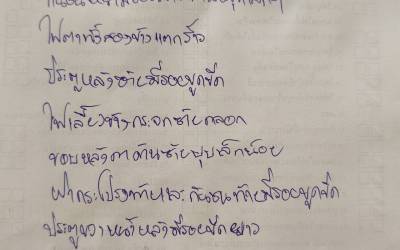 ไฟตาหรี่สองข้างแตกร้าว
ประตูหลังซ้ายมีรอยขูดขีด
ไฟเลี้ยวข้างกระจกซ้ายถลอก
ขอบหลังคาด้านซ้ายบุบเล็กน้อย
ฝากระโปรงท้ายและกันชนท้ายมีรอยขูดขีด
ประตูขวาหน้าหลังมีรอยขีดยาว